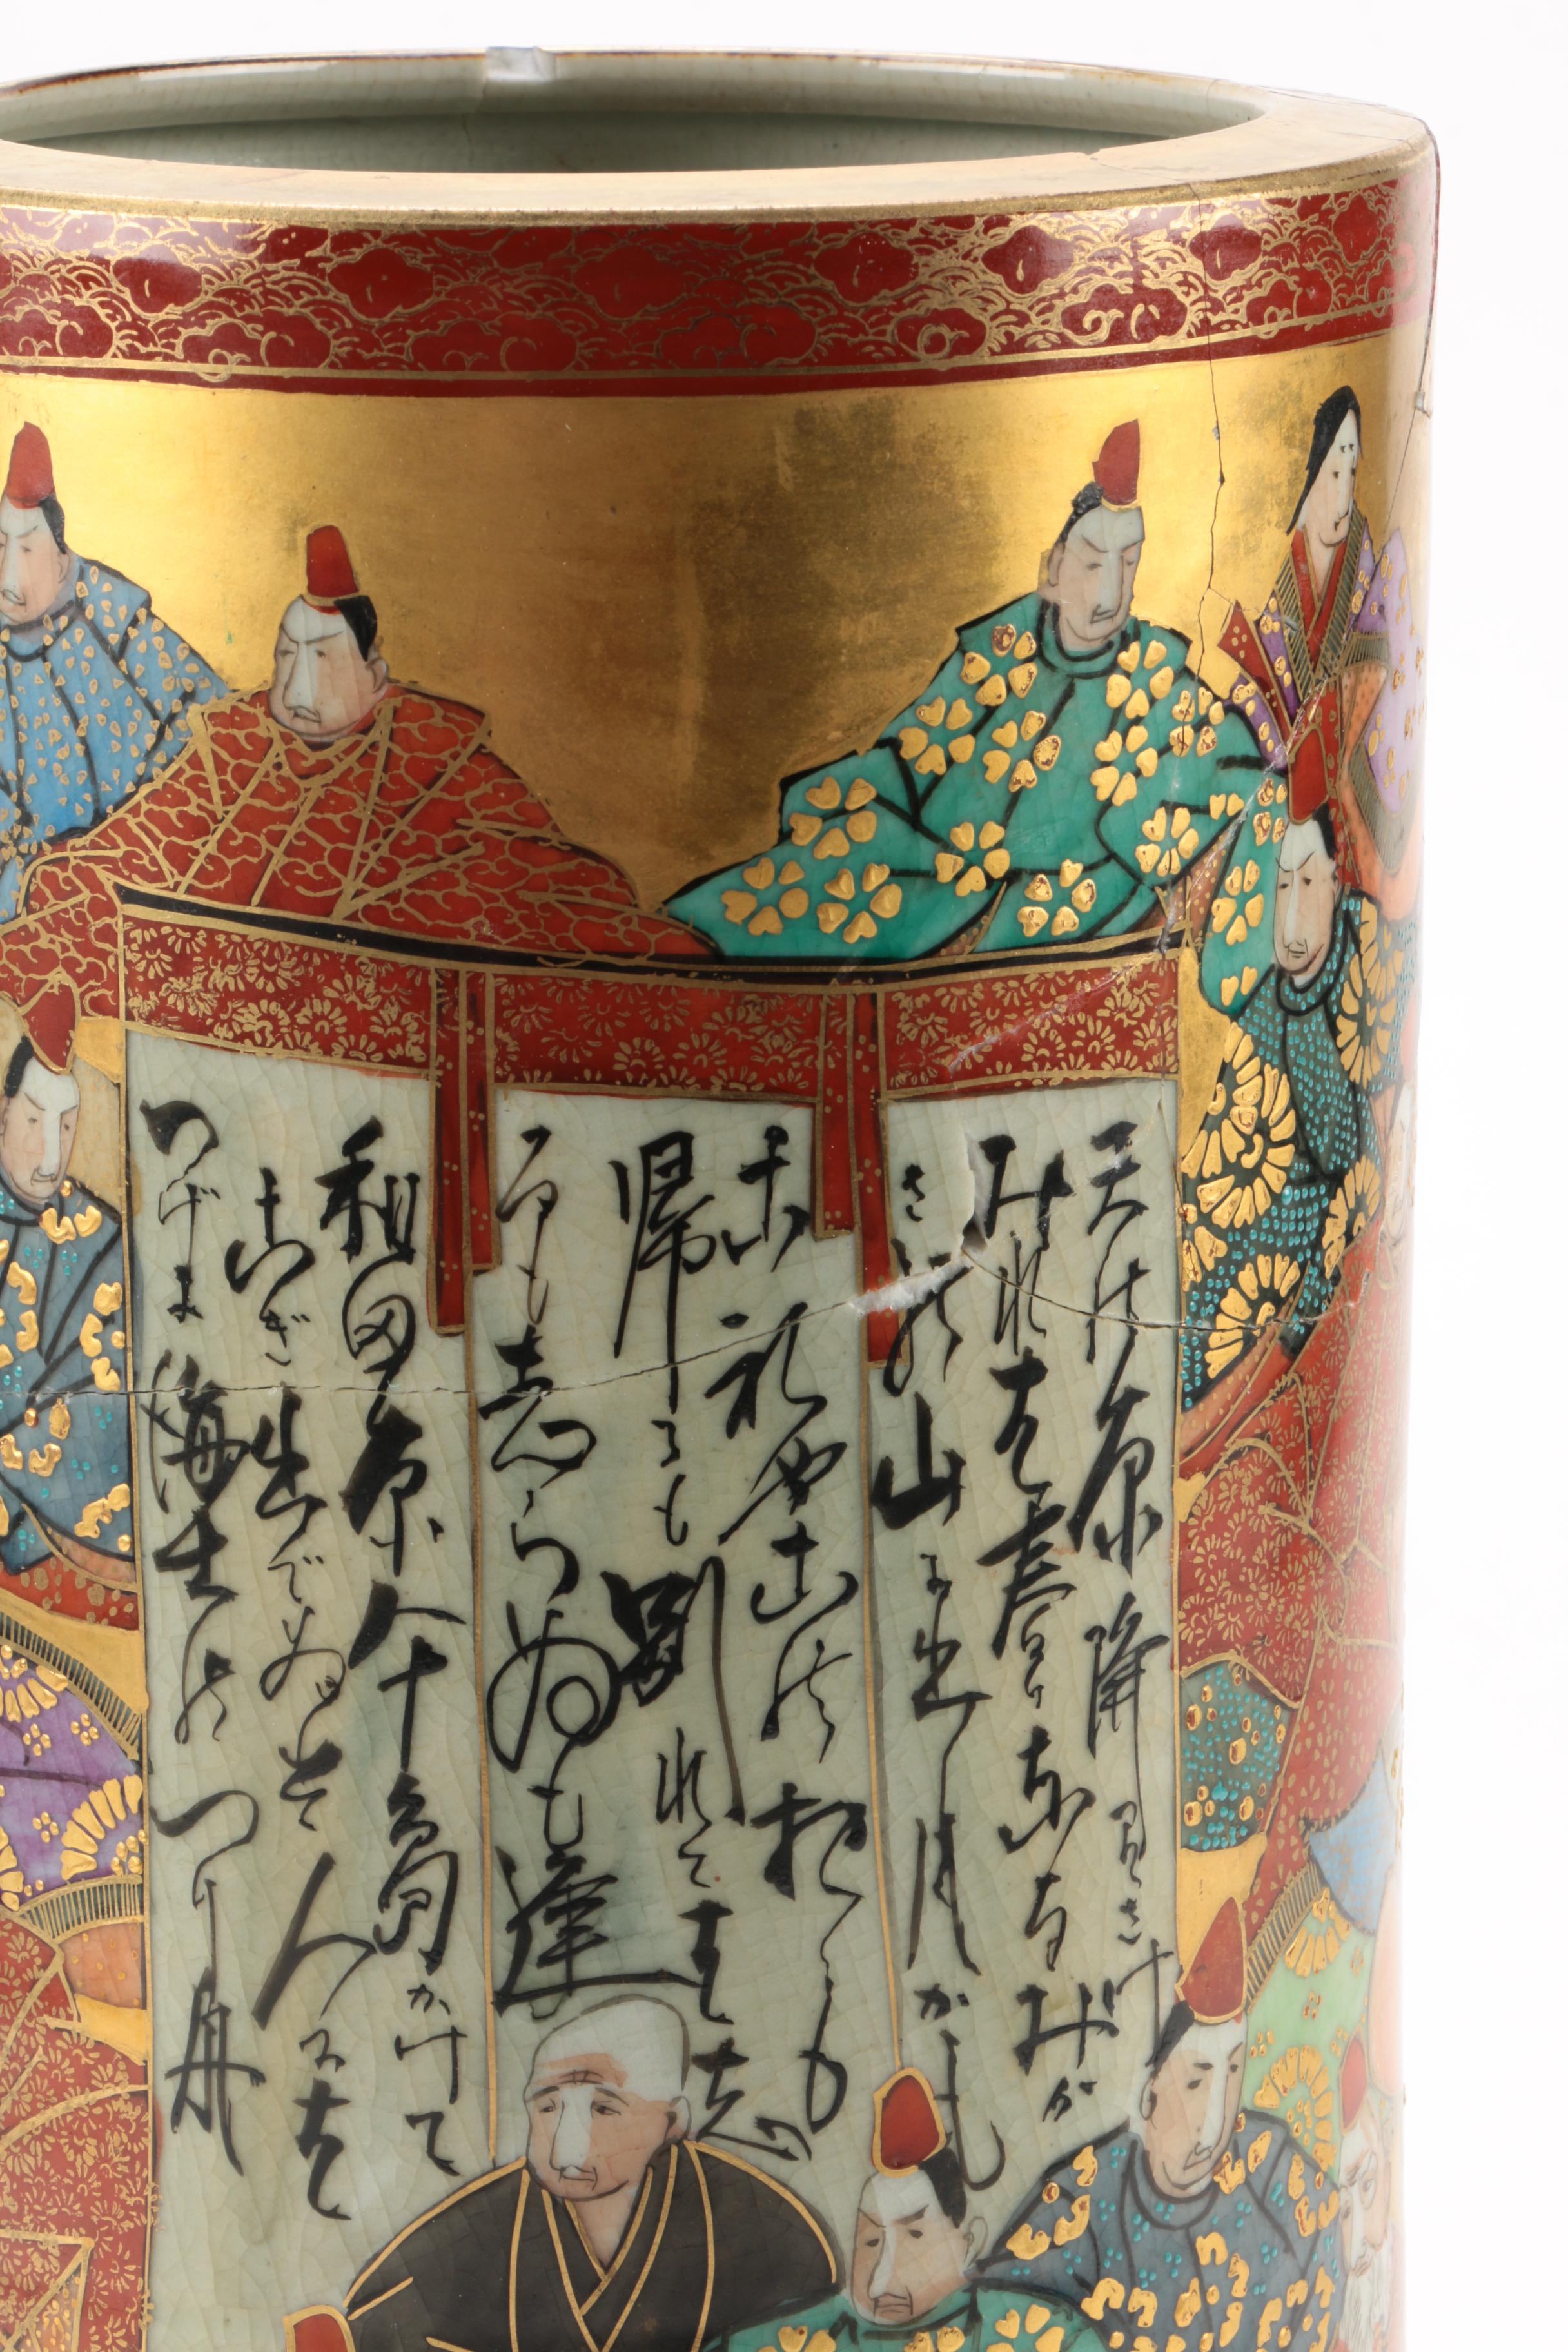 天の原降りさけ
みれは春日なるみが
さの山に出し月かも
これやこの行くも
帰るも別れては志
るも志らぬも逢
和田原八十島かけて
こぎ出でぬと人には
つげよ海士のつり舟